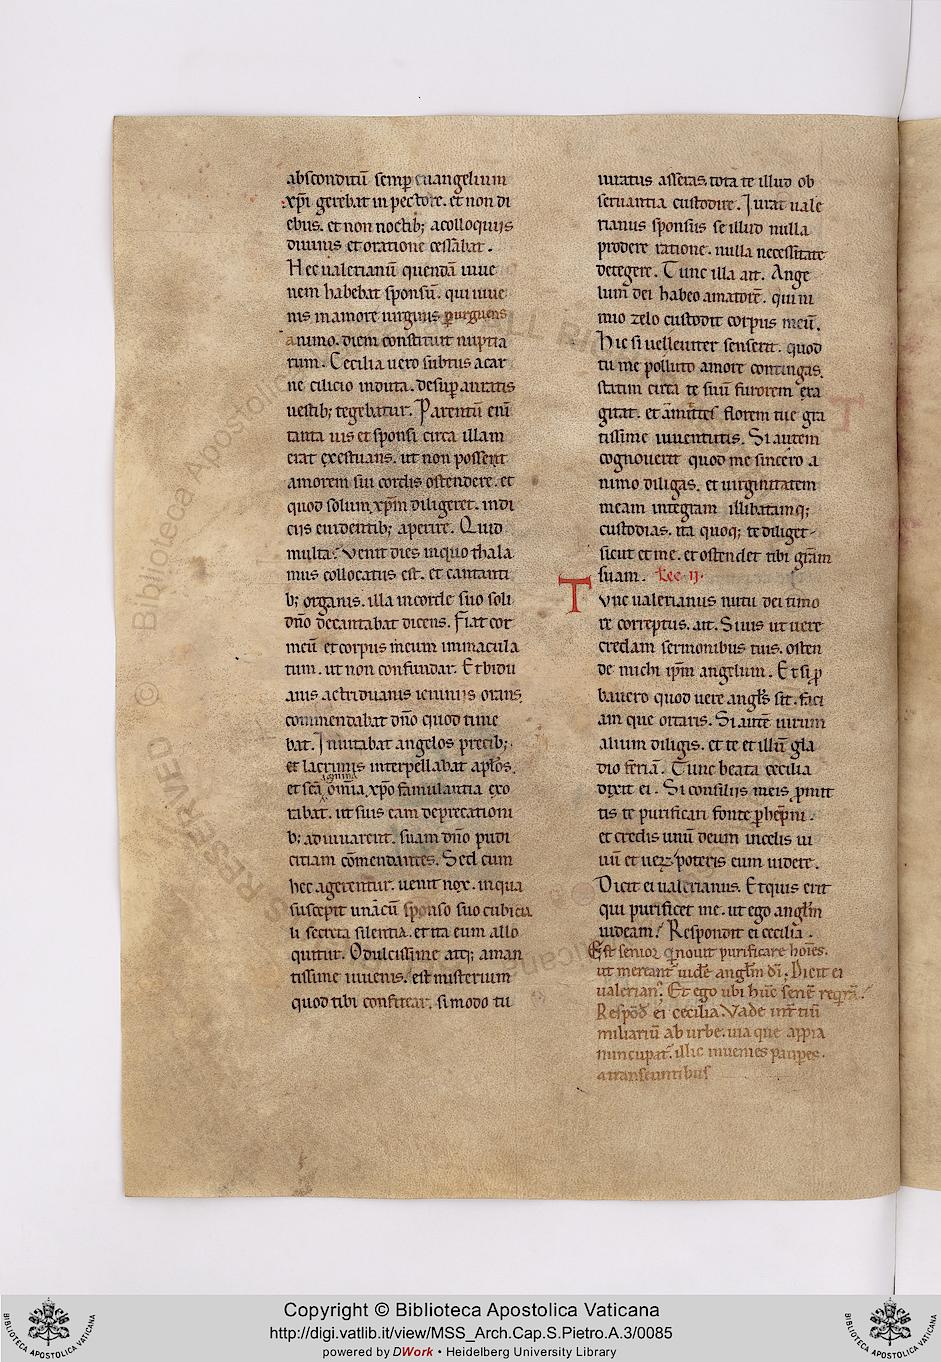 absconditū semp euangelium
xp̄i gerebat in pectore. et non di
ebus. et non noctib; a colloquiis
diuinis et oratione cessabat.
Hec ualerianū quendā iuue
nem habebat sponsū. qui iuue
nis in amorē uirginis ꝑurguens
animo. diem constituit nuptia
rum. Cecilia uero subtus a car
ne cilicio induta. desuꝑ auratis
uestib; tegebatur. Parentū enī
tanta uis et sponsi circa illam
erat exestuans. ut non posset
amorem sui cordis ostendere. et
quod solum xp̄m diligeret. indi
ciis euidentib; aperire. Quid
multa? Venit dies in quo thala
mus collocatus est. et cantanti
b; organis. illa in corde suo soli
dn̄o decantabat dicens. Fiat cor
meū et corpus meum immacula
tum. ut non confundar. Et bidu
anis ac triduanis ieiuniis orans.
commendabat dn̄o quod time
bat. Inuitabat angelos precib;
et lacrimis interpellabat apl̄os.
et sc̄a omīa xp̄o famulantia exo
rabat. ut suis eam deprecationi
b; adiuuarent. suam dn̄o pudi
citiam cōmendantes. Sed cum
hec agerentur. uenit nox. in qua
suscepit unācū sponso suo cubicu
li secreta silentia. et ita eum allo
quitur. O dulcissime atq; aman
tissime iuuenis. est misterium
quod tibi confitear. si modo tu
iuratus asseras. tota te illud ob
seruantia custodire. Iurat uale
rianus sponsus se illud nulla
prodere ratione. nulla necessitate
detegere. Tunc illa ait. Ange
lum dei habeo amatorē. qui ni
mio zelo custodit corpus meū.
Hic si uel leuiter senserit. quod
tu me polluto amore contingas.
statim circa te suū furorem exa
gitat. et amittes florem tue gra
tissime iuuentutis. Si autem
cognouerit quod me sincero a
nimo diligas. et uirginitatem
meam integram illibatamq;
custodias. ita quoq; te diliget
sicut et me. et ostendet tibi grām
suam. Lec ii.
Tvnc ualerianus nutu dei timo
re correptus. ait. Si uis ut uere
credam sermonibus tuis. osten
de michi ip̄m angelum. Et si ꝓ
bauero quod uere angl̄s sit. faci
am que ortaris. Si autē uirum
alium diligis. et te et illū gla
dio feriā. Tunc beata cecilia
dixit ei. Si consiliis meis ꝓmit
tis te purificari fonte ꝑhēpni.
et credis unū deum in celis ui
uū et uerꝝ poteris eum uidere.
Dicit ei ualerianus. Et quis erit
qui purificet me. ut ego angl̄m
uideam? Respondit ei cecilia.
Est senior q̇ nouit purificare hoīes.
ut mereant᷑ uidē angl̄m dī. Dicit ei
ualerian9. Et ego ubi hūc senē reqrā?
Respōd ei cecilia. Vade int̄ tiū
miliariū ab urbe. uia que appia
nuncupat᷑. illic inuenies pauꝑes.
a transeuntibus
Copyright © Biblioteca Apostolica Vaticana
http://digi.vatlib.it/view/MSS_Arch.Cap.S.Pietro.A.3/0085
powered by DWork • Heidelberg University Library
BIBLIOTECA APOSTOLICA VATICANA
BIBLIOTECA APOSTOLICA VATICANA